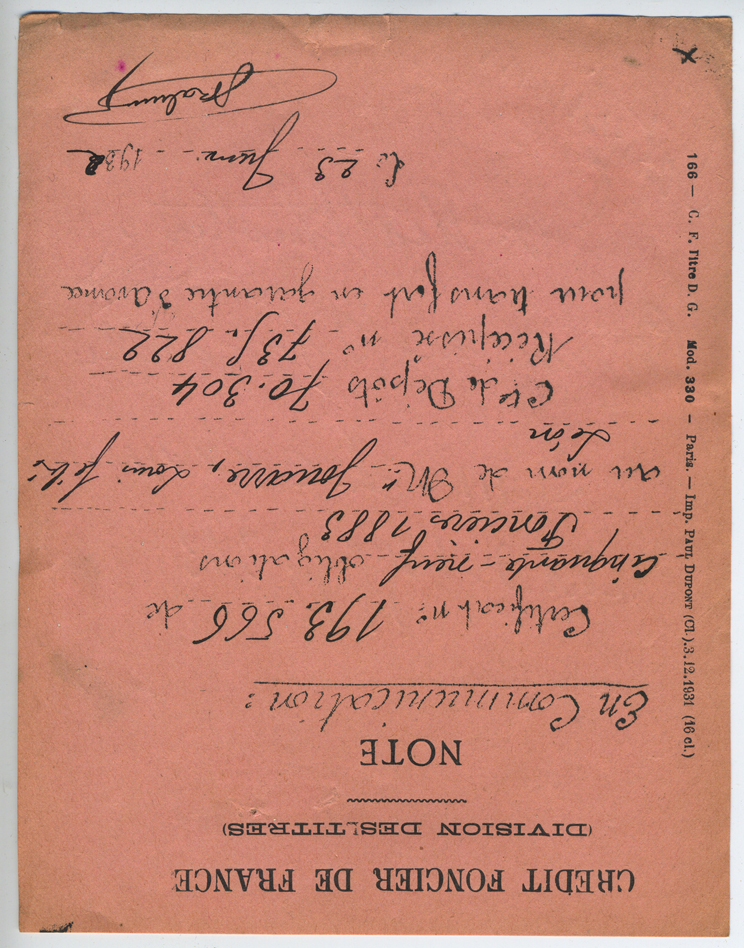 CREDIT FONCIER DE FRANCE
(DIVISION DES TITRES)
NOTE
En Communication:
Certificat n° 193.566 de
Cinquante-neuf obligations
Foncières 1883
au nom de Mr Jouarre, Louis
Léon
Cte de Dépôts 70.304
Récépissé n° 735.822
pour transfert en garantie d'avance
Le 23 Juin 1932
166 — C. F. Titre D. G. Mod. 330 — Paris. — Imp. PAUL DUPONT (Cl.).3.12.1931 (16 cl.)
x